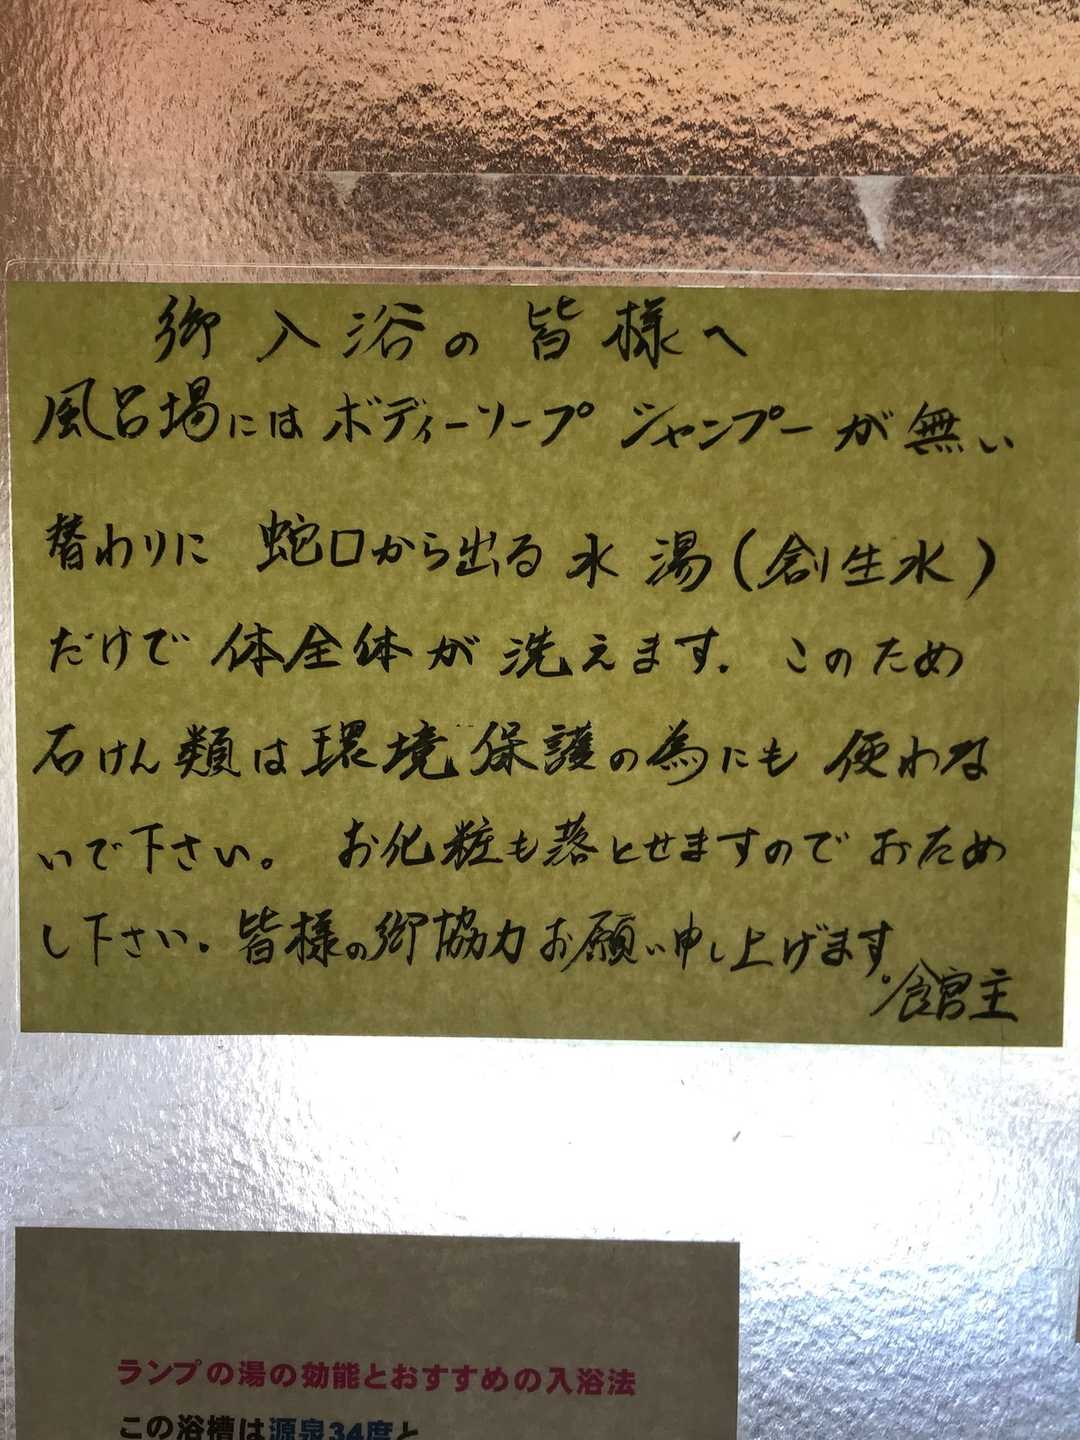 御入浴の皆様へ
風呂場にはボディーソープ シャンプーが無い
替わりに 蛇口から出る水 湯(創生水)
だけで 体全体が 洗えます. このため
石けん類は環境保護の為にも 使わな
いで下さい。 お化粧も落とせますので おため
し下さい. 皆様の御協力お願い申し上げます。
館主
ランプの湯の効能とおすすめの入浴法
この浴槽は源泉34度と